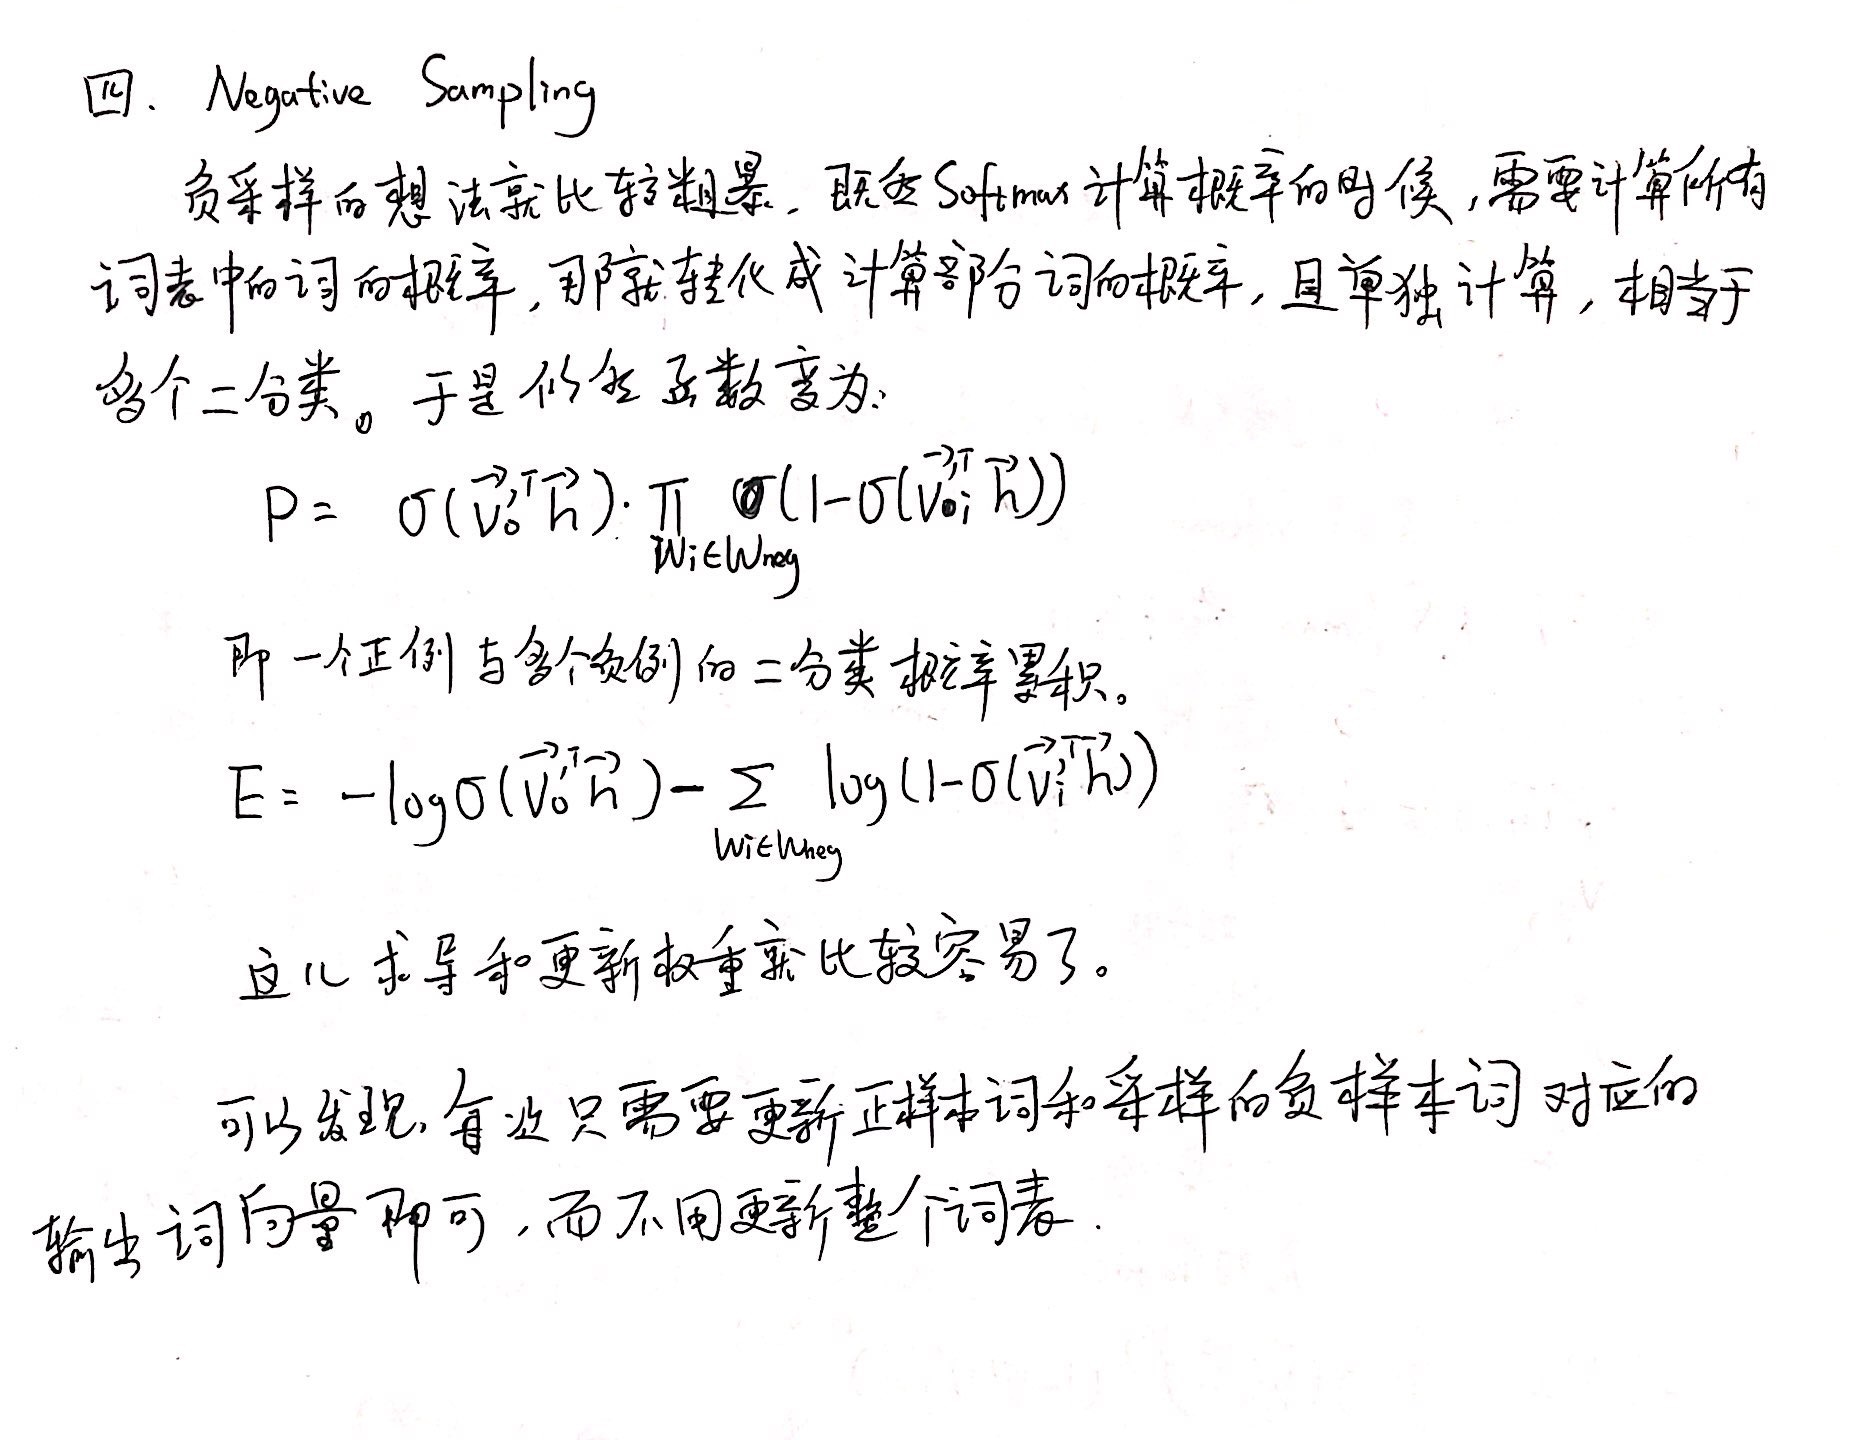 四. Negative Sampling
负采样的想法就比较粗暴. 既然Softmax计算概率的时候,需要计算所有
词表中的词的概率,那就转化成计算部分词的概率,且单独计算,相当于
多个二分类。于是似然函数变为:
P = σ(v⃗'₀ᵀh⃗)·∏ σ(1-σ(v⃗'₀ᵢᵀh⃗))
Wi∈Wneg
即一个正例与多个负例的二分类概率累积。
E = -logσ(v⃗'₀ᵀh⃗)-Σ log(1-σ(v⃗'ᵢᵀh⃗))
Wi∈Wneg
这儿求导和更新权重就比较容易了。
可以发现,每次只需要更新正样本词和采样的负样本词对应的
输出词向量即可,而不用更新整个词表.